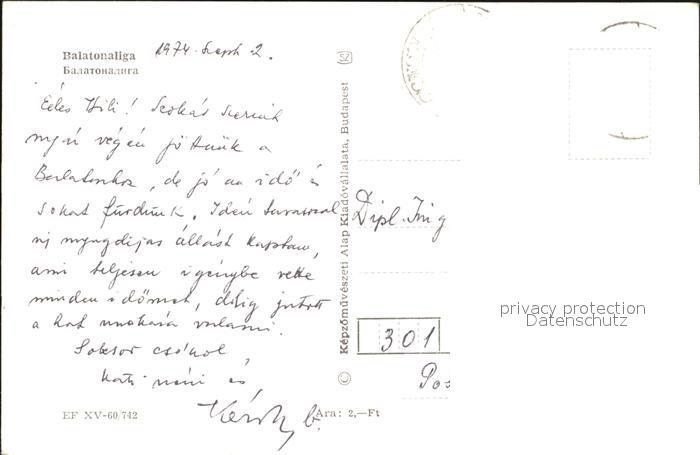 Balatonaliga
Балатоналига
1974. Szept. 2.
Édes Hili! Szokás szerint
nyár végén jöttünk a
Balatonhoz, de jó az idő és
sokat fürdünk. Idén tavasszal
új nyugdíjas állást kaptam,
ami teljesen igénybe vette
minden időmet, alig jutott
a hat unokára valami.
Sokszor csókol,
Kati néni és
b.
EF XV-60/742
Ára: 2,—Ft
SZ
Képzőművészeti Alap Kiadóvállalata, Budapest
©
Dipl. Ing
301
Pos
privacy protection
Datenschutz